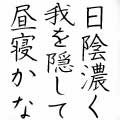 日陰濃く
我を隠して
昼寝かな